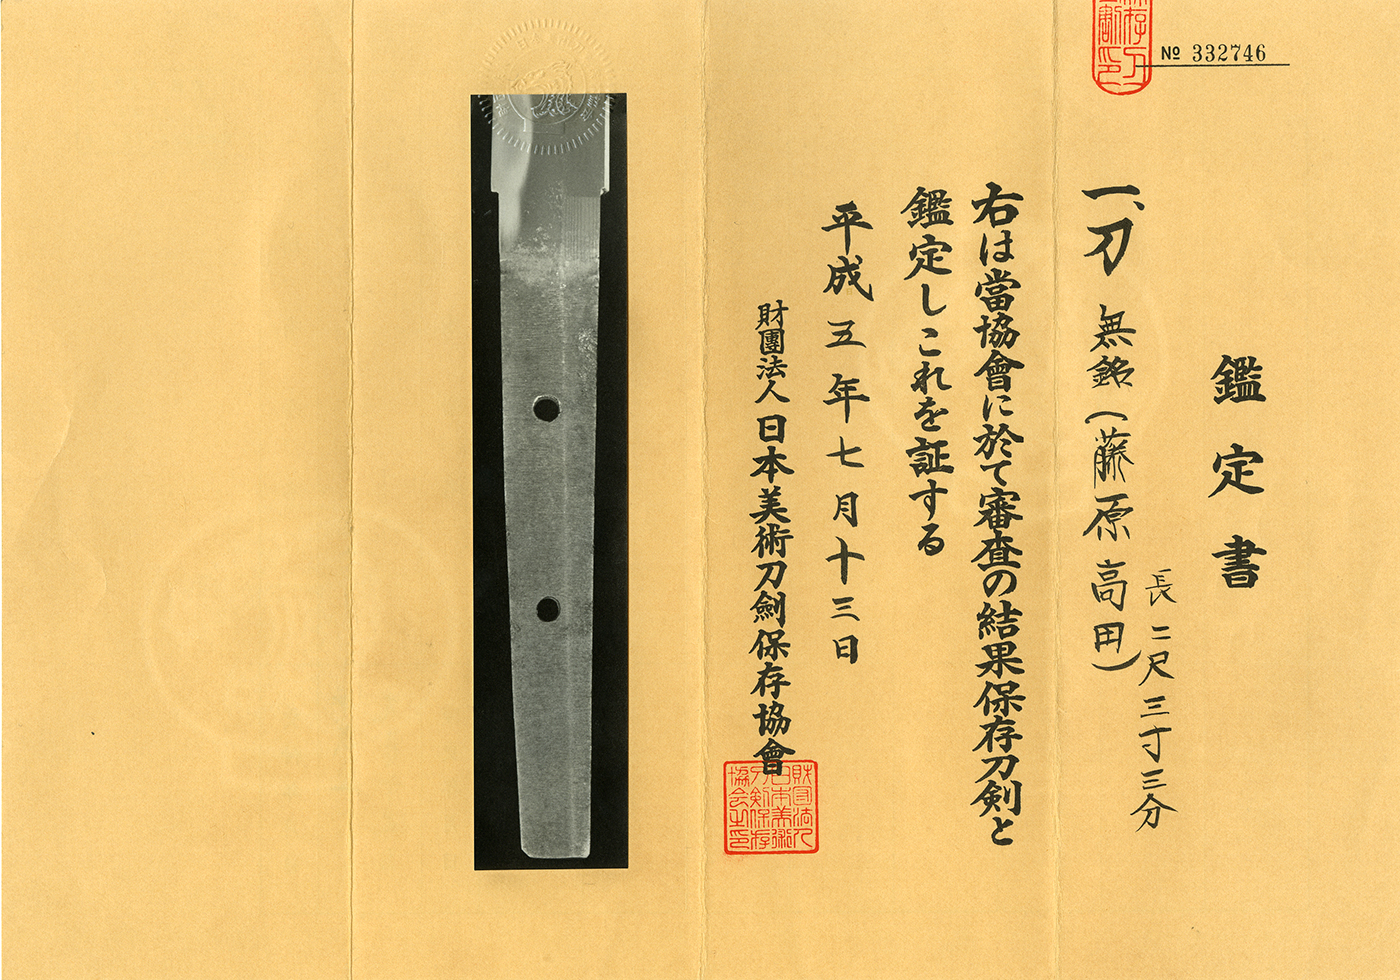 № 332746
鑑定書
一、刀 無銘(藤原高田)
長二尺三寸三分
右は當協會に於て審査の結果保存刀剣と
鑑定しこれを証する
平成五年七月十三日
財團法人日本美術刀劍保存協會
財団法人
日本美術
刀剣保存
協会之印